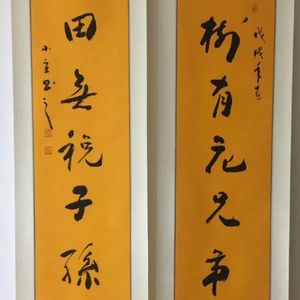 樹有花兄弟
戊戌年
田無稅子孫